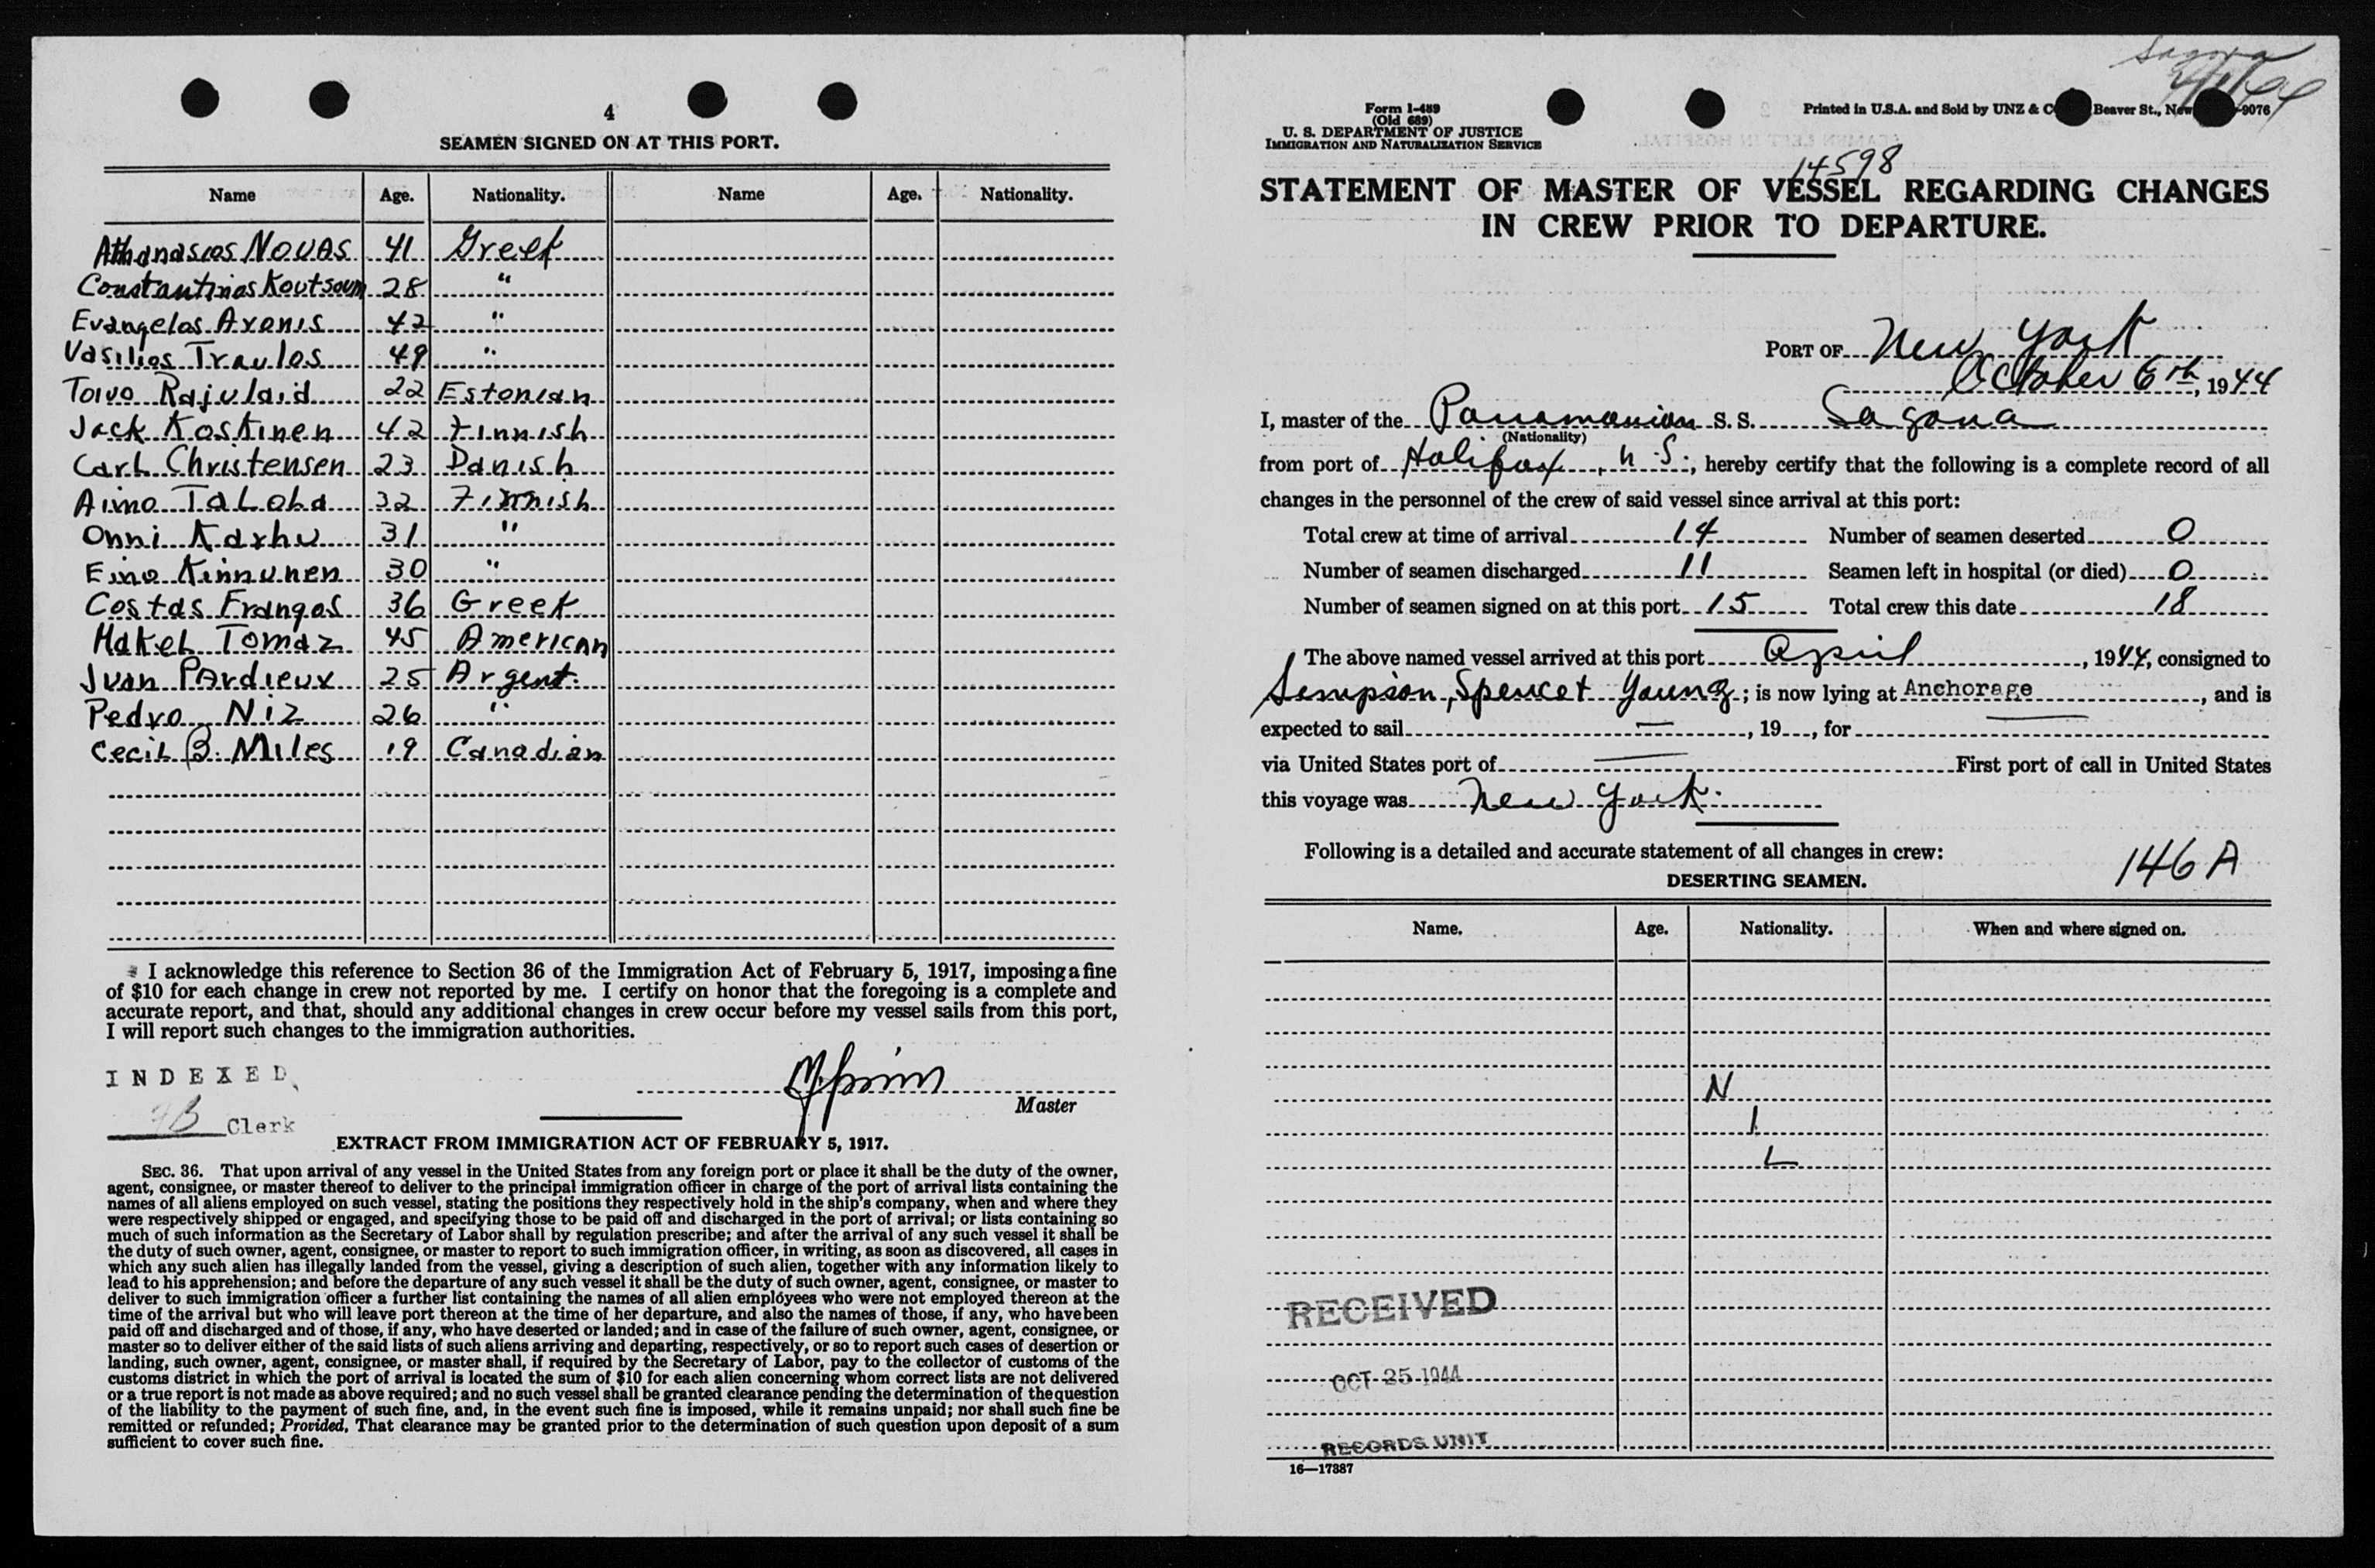 4
SEAMEN SIGNED ON AT THIS PORT.
Name Age. Nationality. Name Age. Nationality.
Athanasios Novas 41 Greek
Constantinos Koutsoum 28 "
Evangelos Axonis 42 "
Vasilios Travlos 49 "
Toivo Rajulaid 22 Estonian
Jack Koskinen 42 Finnish
Carl Christensen 23 Danish
Aimo TaLoha 32 Finnish
Onni Karhu 31 "
Eino Kinnunen 30 "
Costas Frangos 36 Greek
Hakel Tomaz 45 American
Juan PArdieux 25 Argent.
Pedro Niz 26 "
Cecil B. Miles 19 Canadian
I acknowledge this reference to Section 36 of the Immigration Act of February 5, 1917, imposing a fine
of $10 for each change in crew not reported by me. I certify on honor that the foregoing is a complete and
accurate report, and that, should any additional changes in crew occur before my vessel sails from this port,
I will report such changes to the immigration authorities.
INDEXED
Master
Clerk
EXTRACT FROM IMMIGRATION ACT OF FEBRUARY 5, 1917.
SEC. 36. That upon arrival of any vessel in the United States from any foreign port or place it shall be the duty of the owner,
agent, consignee, or master thereof to deliver to the principal immigration officer in charge of the port of arrival lists containing the
names of all aliens employed on such vessel, stating the positions they respectively hold in the ship's company, when and where they
were respectively shipped or engaged, and specifying those to be paid off and discharged in the port of arrival; or lists containing so
much of such information as the Secretary of Labor shall by regulation prescribe; and after the arrival of any such vessel it shall be
the duty of such owner, agent, consignee, or master to report to such immigration officer, in writing, as soon as discovered, all cases in
which any such alien has illegally landed from the vessel, giving a description of such alien, together with any information likely to
lead to his apprehension; and before the departure of any such vessel it shall be the duty of such owner, agent, consignee, or master to
deliver to such immigration officer a further list containing the names of all alien employees who were not employed thereon at the
time of the arrival but who will leave port thereon at the time of her departure, and also the names of those, if any, who have been
paid off and discharged and of those, if any, who have deserted or landed; and in case of the failure of such owner, agent, consignee, or
master so to deliver either of the said lists of such aliens arriving and departing, respectively, or so to report such cases of desertion or
landing, such owner, agent, consignee, or master shall, if required by the Secretary of Labor, pay to the collector of customs of the
customs district in which the port of arrival is located the sum of $10 for each alien concerning whom correct lists are not delivered
or a true report is not made as above required; and no such vessel shall be granted clearance pending the determination of the question
of the liability to the payment of such fine, and, in the event such fine is imposed, while it remains unpaid; nor shall such fine be
remitted or refunded; Provided, That clearance may be granted prior to the determination of such question upon deposit of a sum
sufficient to cover such fine.
Sagona
Form I-489
(Old 689)
U. S. DEPARTMENT OF JUSTICE
IMMIGRATION AND NATURALIZATION SERVICE
Printed in U.S.A. and Sold by UNZ & C Beaver St., New -9076
14598
STATEMENT OF MASTER OF VESSEL REGARDING CHANGES
IN CREW PRIOR TO DEPARTURE.
PORT OF New York
October 6th, 1944
I, master of the Panamanian S. S. Sagona
(Nationality)
from port of Halifax, N.S., hereby certify that the following is a complete record of all
changes in the personnel of the crew of said vessel since arrival at this port:
Total crew at time of arrival 14 Number of seamen deserted 0
Number of seamen discharged 11 Seamen left in hospital (or died) 0
Number of seamen signed on at this port 15 Total crew this date 18
The above named vessel arrived at this port April, 1944, consigned to
Simpson, Spence & Young; is now lying at Anchorage, and is
expected to sail —, 19, for —
via United States port of — First port of call in United States
this voyage was New York.
Following is a detailed and accurate statement of all changes in crew:
146 A
DESERTING SEAMEN.
Name. Age. Nationality. When and where signed on.
N
I
L
RECEIVED
OCT 25 1944
RECORDS UNIT
16—17387